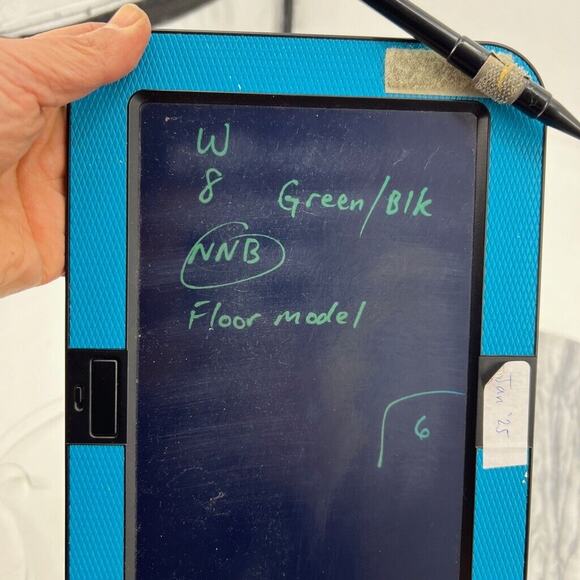 W
8 Green/Blk
NNB
Floor model
6
Jan '25